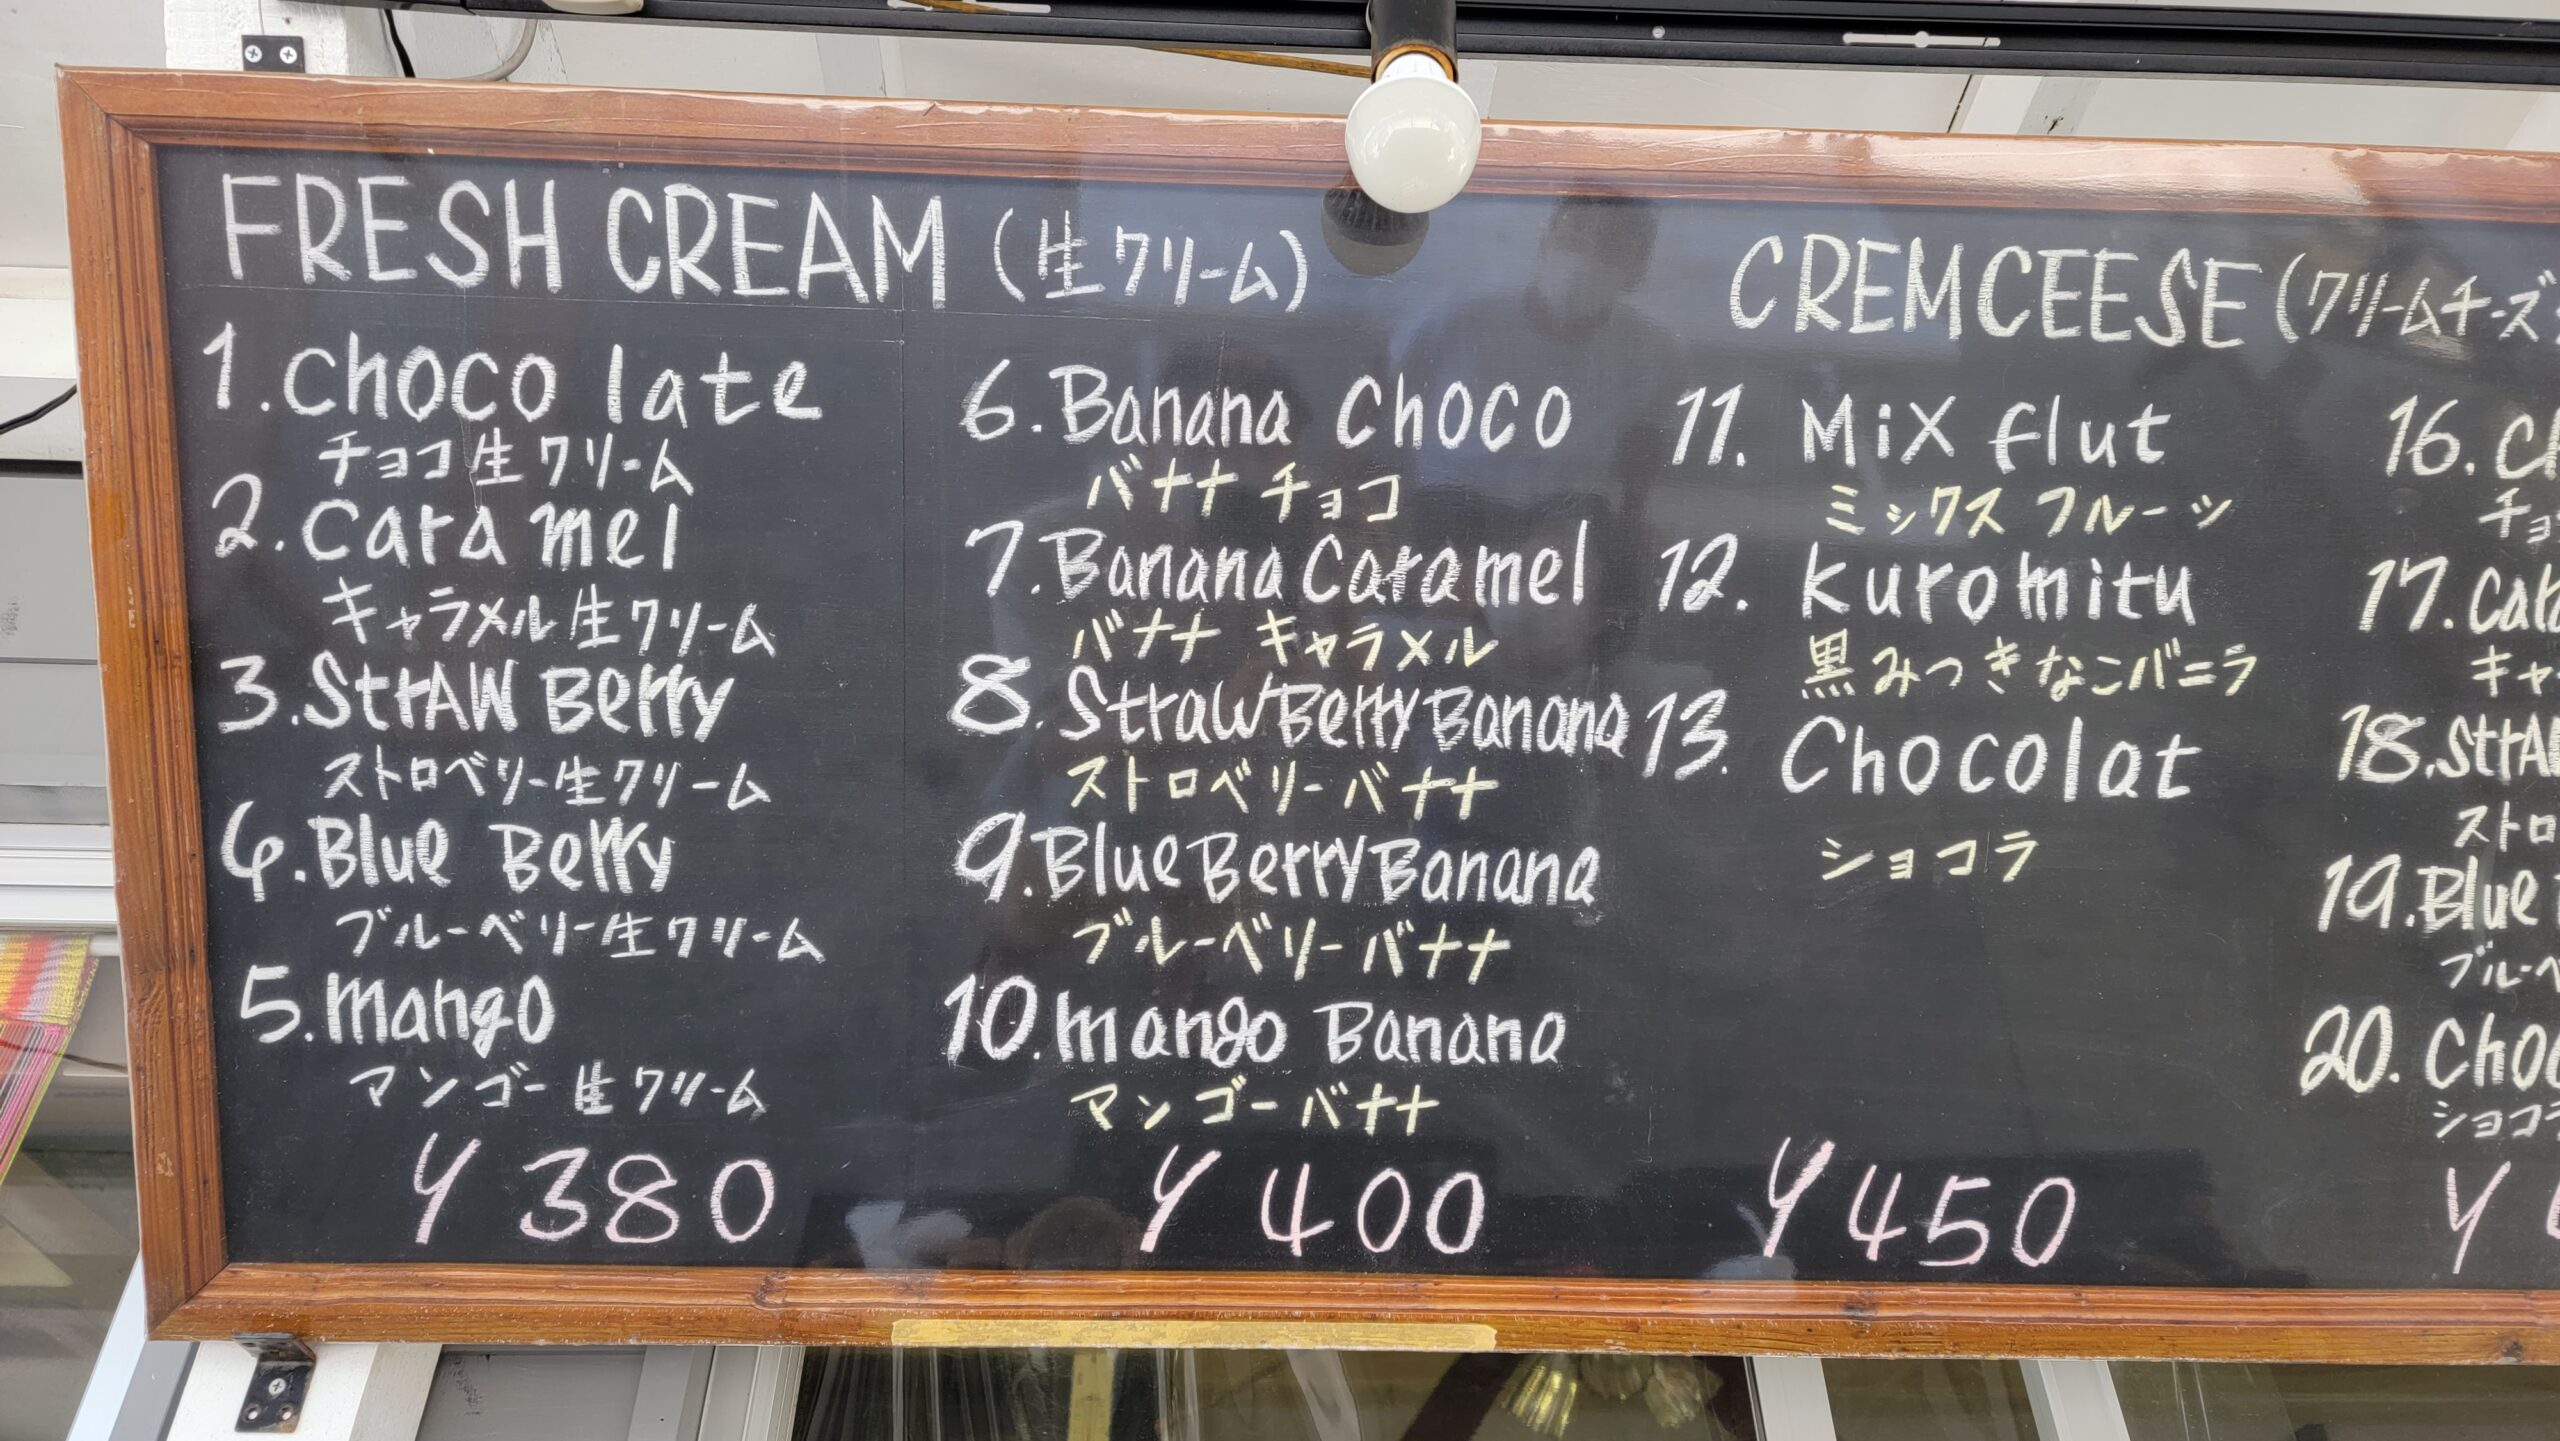 FRESH CREAM (生クリーム)
1. chocolate
チョコ生クリーム
2. caramel
キャラメル生クリーム
3. StrAW Berry
ストロベリー生クリーム
4. Blue Berry
ブルーベリー生クリーム
5. mango
マンゴー生クリーム
¥380
6. Banana choco
バナナチョコ
7. Banana Caramel
バナナ キャラメル
8. StrawBerryBanana
ストロベリーバナナ
9. BlueBerryBanana
ブルーベリーバナナ
10. mango Banana
マンゴーバナナ
¥400
CREMCEESE (クリームチーズ
11. Mix flut
ミックスフルーツ
12. kuromitu
黒みつきなこバニラ
13. Chocolat
ショコラ
¥450
16. Ch
チョ
17. Car
キャ
18. StrA
ストロ
19. Blue
ブルーベ
20. Choc
ショコラ
¥